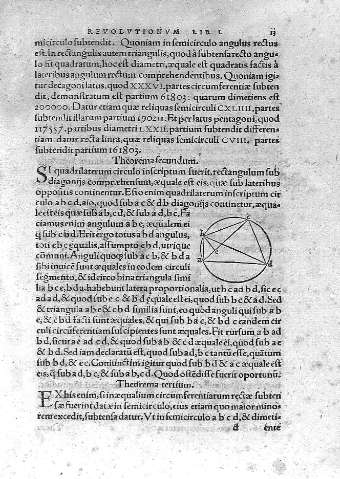 REVOLVTIONVM LIB. I. 13
micirculo subtendit. Quoniam in semicirculo angulus rectus
est. In rectangulis autem triangulis, quod à subtensa recto angu-
lo fit quadratum, hoc est diametri, æquale est quadratis factis à
lateribus angulum rectum comprehendentibus. Quoniam igi
tur decagoni latus, quod XXXVI. partes circumferentiæ subten
dit, demonstratum est partium 61803: quarum dimetiens est
200000. Datur etiam quæ reliquas semicirculi CXLIIII. partes
subtendit illarum partium 190211. Et per latus pentagoni, quod
117557. partibus diametri LXXII. partium subtendit differen
tiam datur recta linea, quæ reliquas semicirculi CVIII. partes
subtendit partium 161803.
Theorema secundum.
SI quadrilaterum circulo inscriptum fuerit, rectangulum sub
diagonijs comprehensum, æquale est eis, quæ sub lateribus
oppositis continentur. Esto enim quadrilaterum inscriptum cir
culo a b c d, aio, quod sub a c & d b diagonijs continetur, æqua-
le est eis quæ sub a b, c d, & sub a d, b c. Fa
ciamus enim angulum a b e, æqualem ei
q sub c b d. Erit ergo totus a b d angulus,
toti e b c æqualis, assumpto e b d, utrique
communi. Anguli quoque sub a c b, & b d a
sibi inuicem sunt æquales in eodem circuli
segmento, & idcirco bina triangula simi
lia b c e, b d a habebunt latera proportionalia, ut b c ad b d, sic e c
ad a d, & quod sub e c & b d æquale est ei, quod sub b c & a d. Sed
& triangula a b e & c b d similia sunt, eo quod anguli qui sub a b
e, & c b d facti sunt æquales, & qui sub b a c, & b d c eandem cir
culi circumferentiam suscipientes sunt æquales. Fit rursum a b ad
b d, sicut a e ad c d, & quod sub a b & c d æquale ei, quod sub a e
& b d. Sed iam declaratum est, quod sub a d, b c tantum esse, quantum
sub b d, & e c. Coniunctim igitur quod sub b d & a c æquale est
eis, q sub a d, b c, & sub a b, c d. Quod ostendisse fuerit oportunum.
Theorema tertium.
EX his enim, si inæqualium circumferentiarum rectæ subten
sæ fuerint datæ in semicirculo, eius etiam quo maior mino-
rem excedit, subtensa datur. Vt in semicirculo a b c d, & dimeti-
d ente